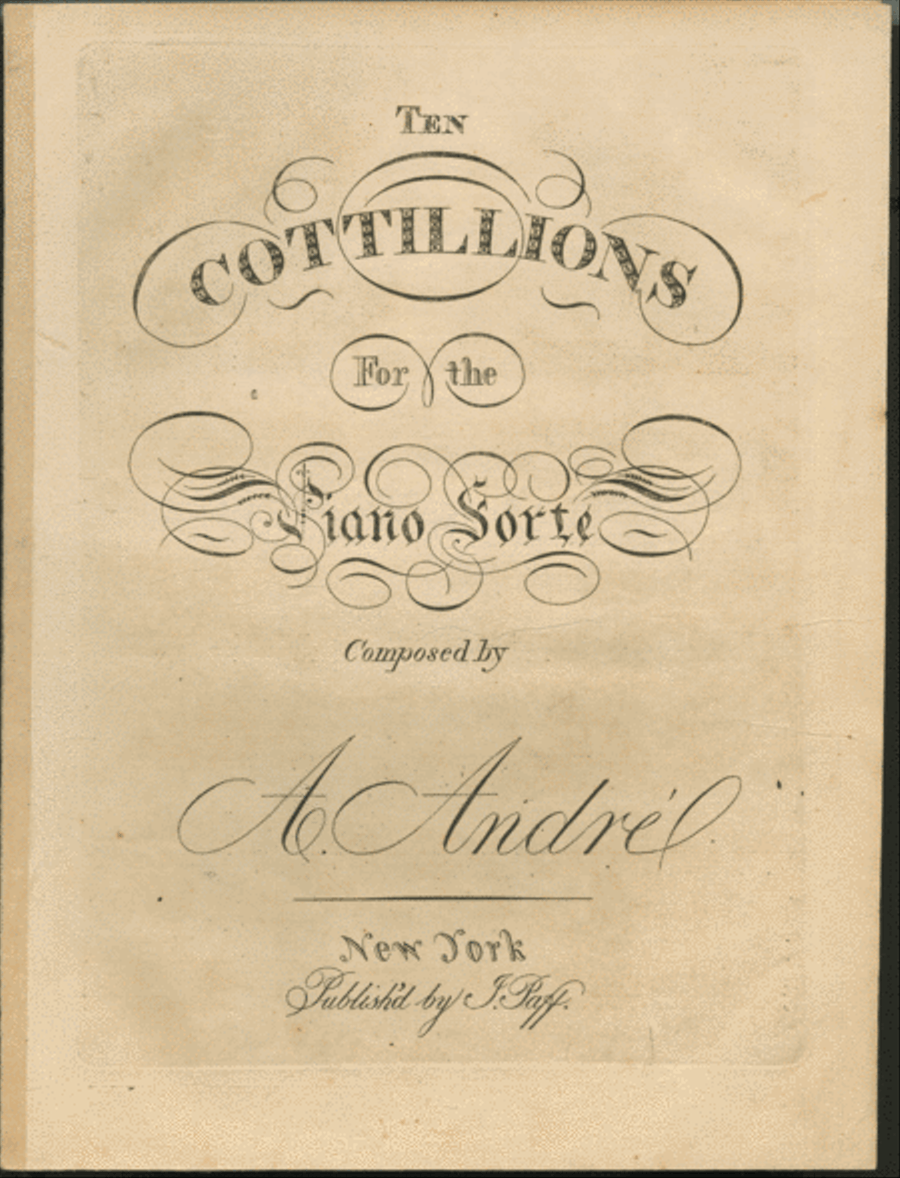 TEN
COTTILLIONS
For the
Piano Forte
Composed by
A. André
New York
Publish'd by J. Paff.